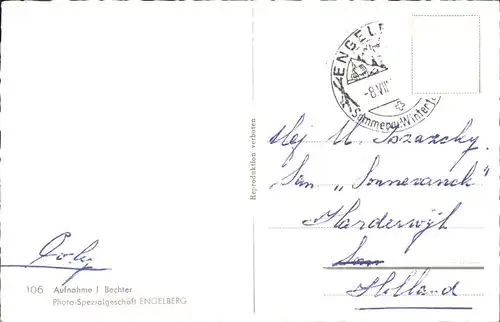 ENGELB
-8.VII
Sommer u. Winter
Reproduktion verboten
Mej M. Sszazcky.
San „Sonnevanck"
Harderwijk
San
Holland
106 Aufnahme J Bechter
Photo-Spezialgeschäft ENGELBERG